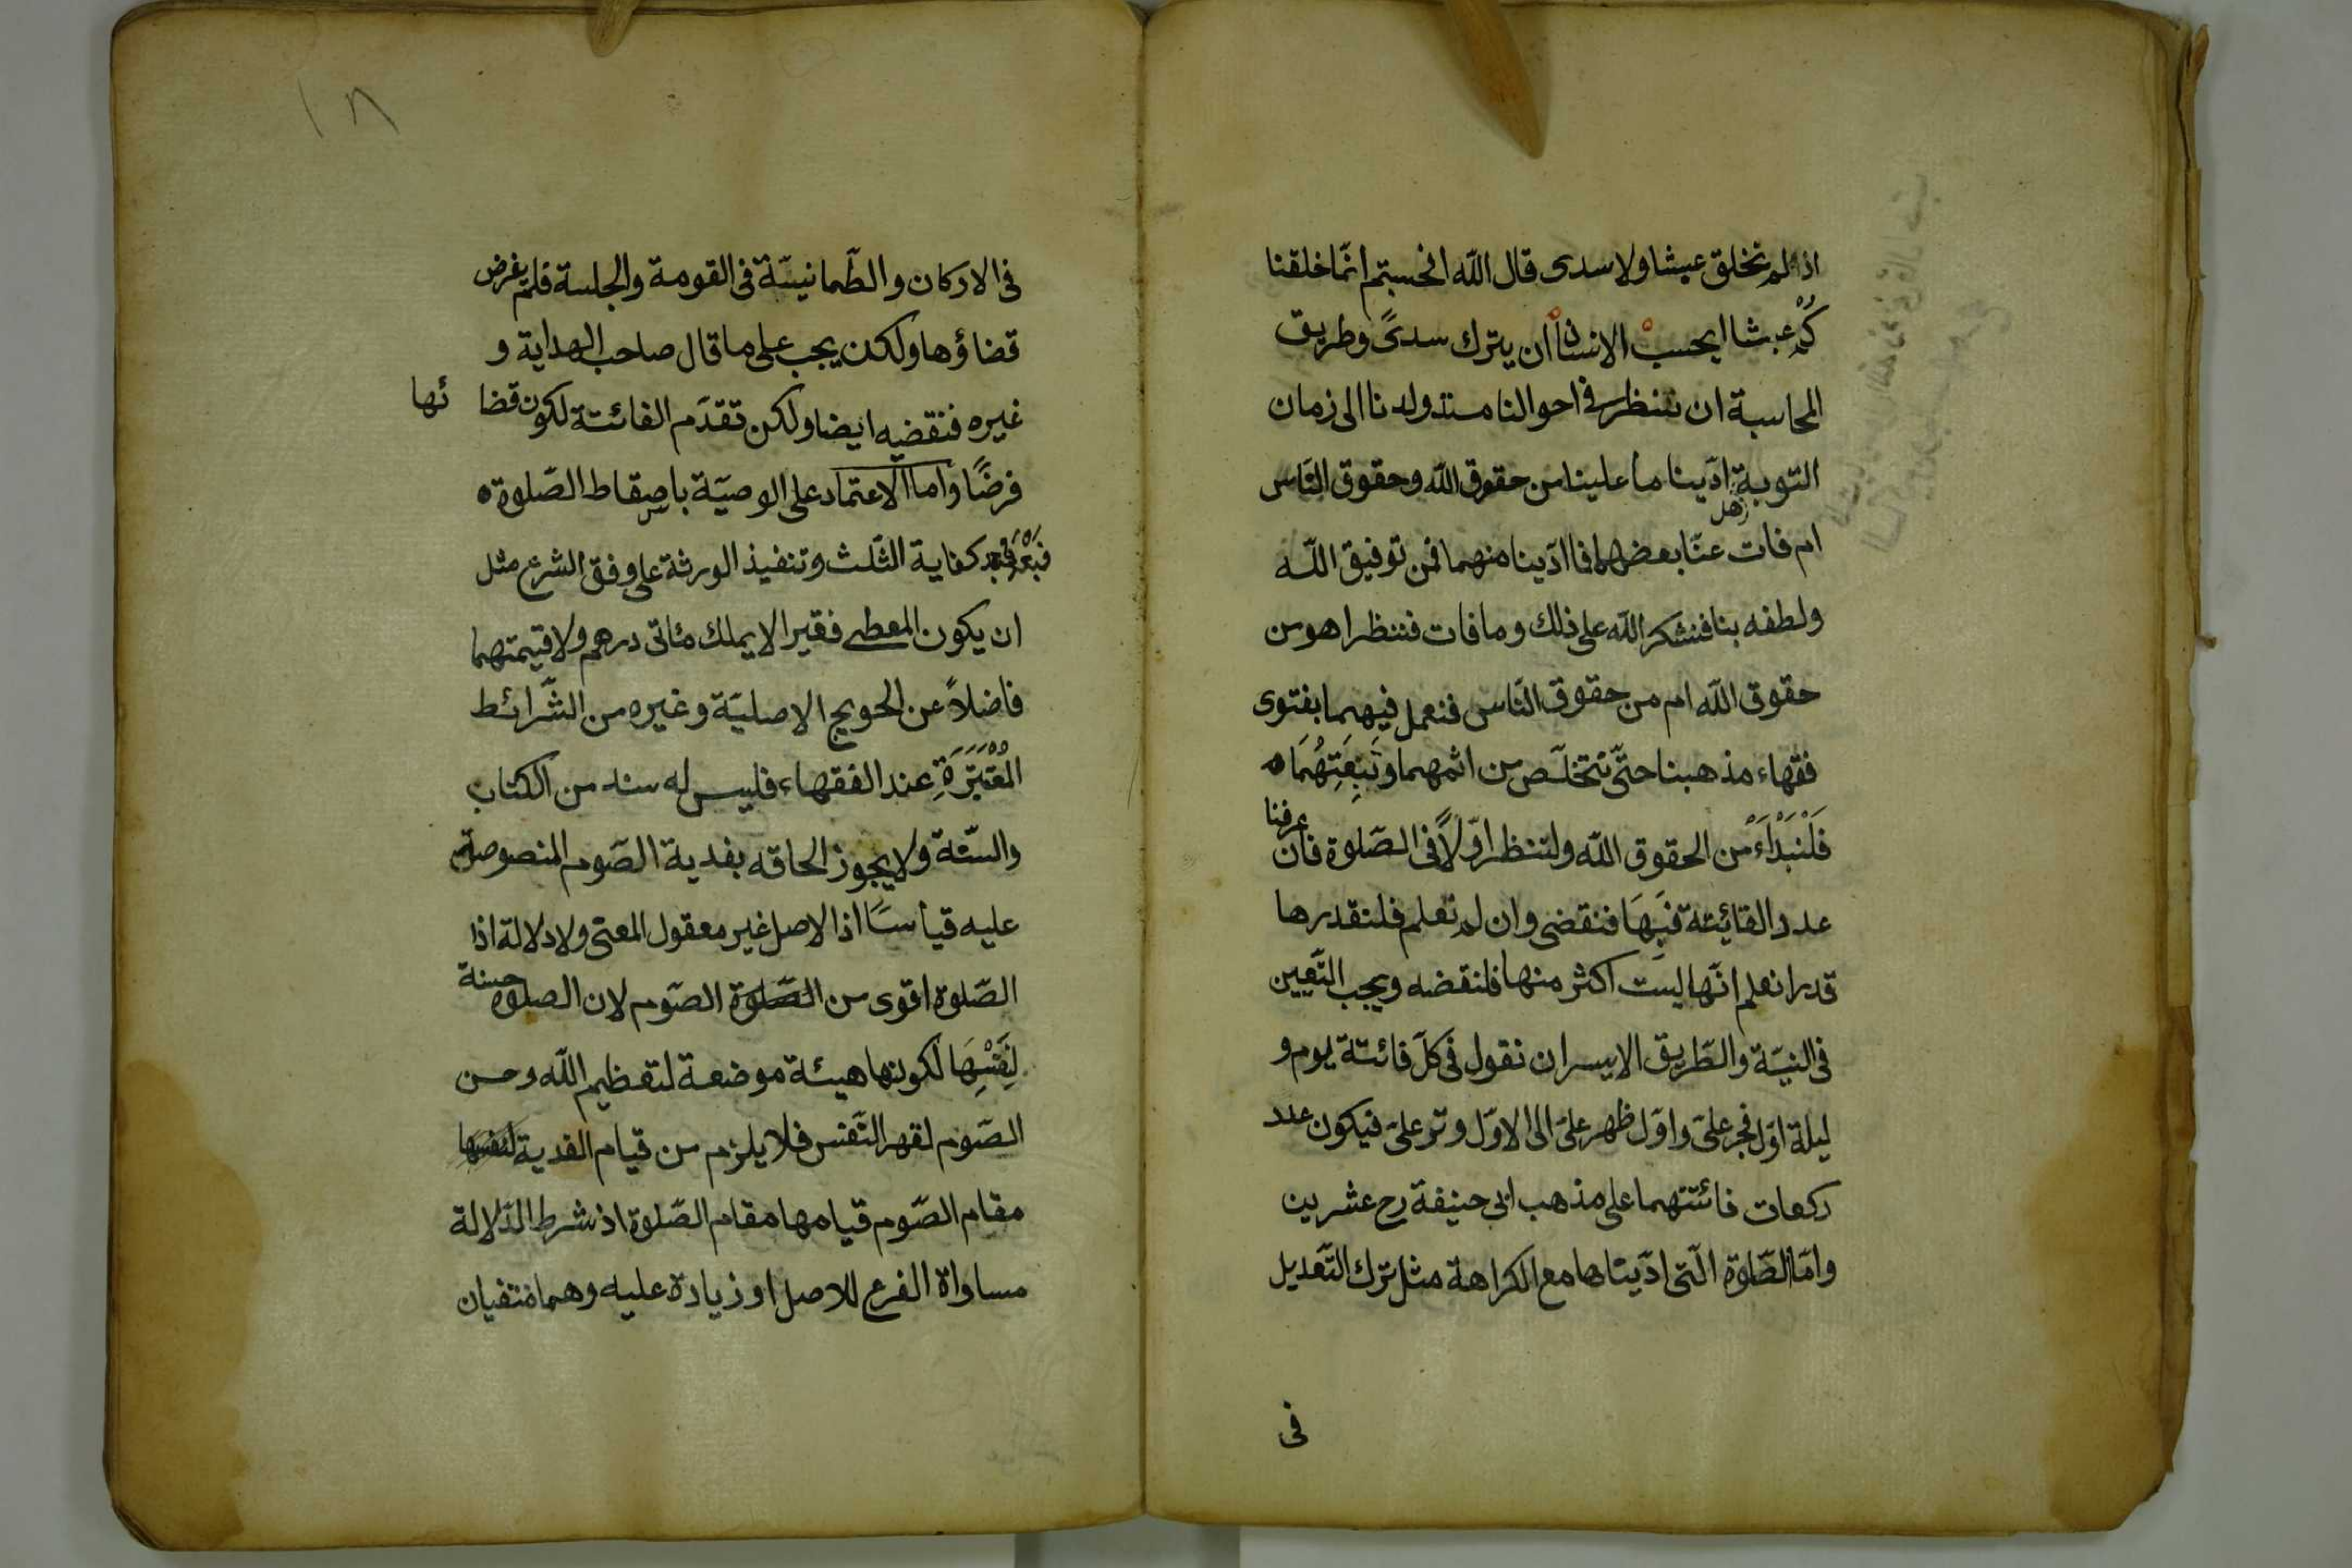 اذ لم تخلق عبثا ولا سدى قال الله افحسبتم انّما خلقنا
كُمْ عبثا ايحسبْ الانسان أن يترك سدىً وطريق
المحاسبة ان ننظر فى احوالنا منذ ولدنا الى زمان
التوبة هل ادّينا ما علينا من حقوق الله وحقوق النّاس
ام فات عنّا بعضهما فما ادّينا منهما فمن توفيق اللّه
ولطفه بنا فنشكر اللّه على ذلك وما فات فننظر اهو من
حقوق اللّه ام من حقوق النّاس فنعمل فيهما بفتوى
فقهاء مذهبنا حتّى نتخلّص من اثمهما وتَبِعَتِهُمَا ه
فَلْنَبْدَاءْ من الحقوق اللّه ولننظر اوّلاً فى الصّلوة فان عرفنا
عدد الفائيتة فَبِهَا فنقضى وان لم نعلم فلنقدرها
قدرا نعلم انّها ليست اكثر منها فلنقضه ويجب التّعيين
فى النيّة والطّريق الايسر ان نقول فى كلّ فائتة يوم و
ليلة اوّل فجر علىّ واوّل ظهر علىّ الى الاوّل وتر علىّ فيكون عدد
ركعات فائتتهما على مذهب ابى حنيفة رح عشرين
وامّا الصّلوة الّتى ادّيناها مع الكراهة مثل ترك التّعديل
فى
١٨
فى الاركان والطّمانيّنة فى القومة والجلسة فلم يفرض
قضاؤها ولكن يجب على ما قال صاحب الهداية و
غيره فنقضيه ايضا ولكن تقدّم الفائتة لكون قضا ئها
فرضًا واما الاعتماد على الوصيّة باسقاط الصّلوة ه
فبَعْدَ كفاية الثّلث وتنفيذ الورثة على وفق الشرع مثل
ان يكون المعطى فقيرا لا يملك مئاتى درهم ولا قيمتهما
فاضلاً عن الحويج الاصليّة وغيره من الشّرائط
المُعْتَبَرَةِ عند الفقهاء فليس له سند من الكتاب
والسّنّة ولا يجوز الحاقه بفدية الصّوم المنصوصة
عليه قياسًا اذ الاصل غير معقول المعنى ولا دلالة اذا
الصّلوة اقوى من الصّلوة الصّوم لان الصلوة حسنة
لِنَفْسِهَا لكونها هيئة موضعة لتعظيم اللّه وحسن
الصّوم لقهر النّفس فلا يلزم من قيام الفدية لنفسها
مقام الصّوم قيامها مقام الصّلوة اذ شرط الدّلالة
مساواة الفرع للاصل او زيادة عليه وهما منتفيان